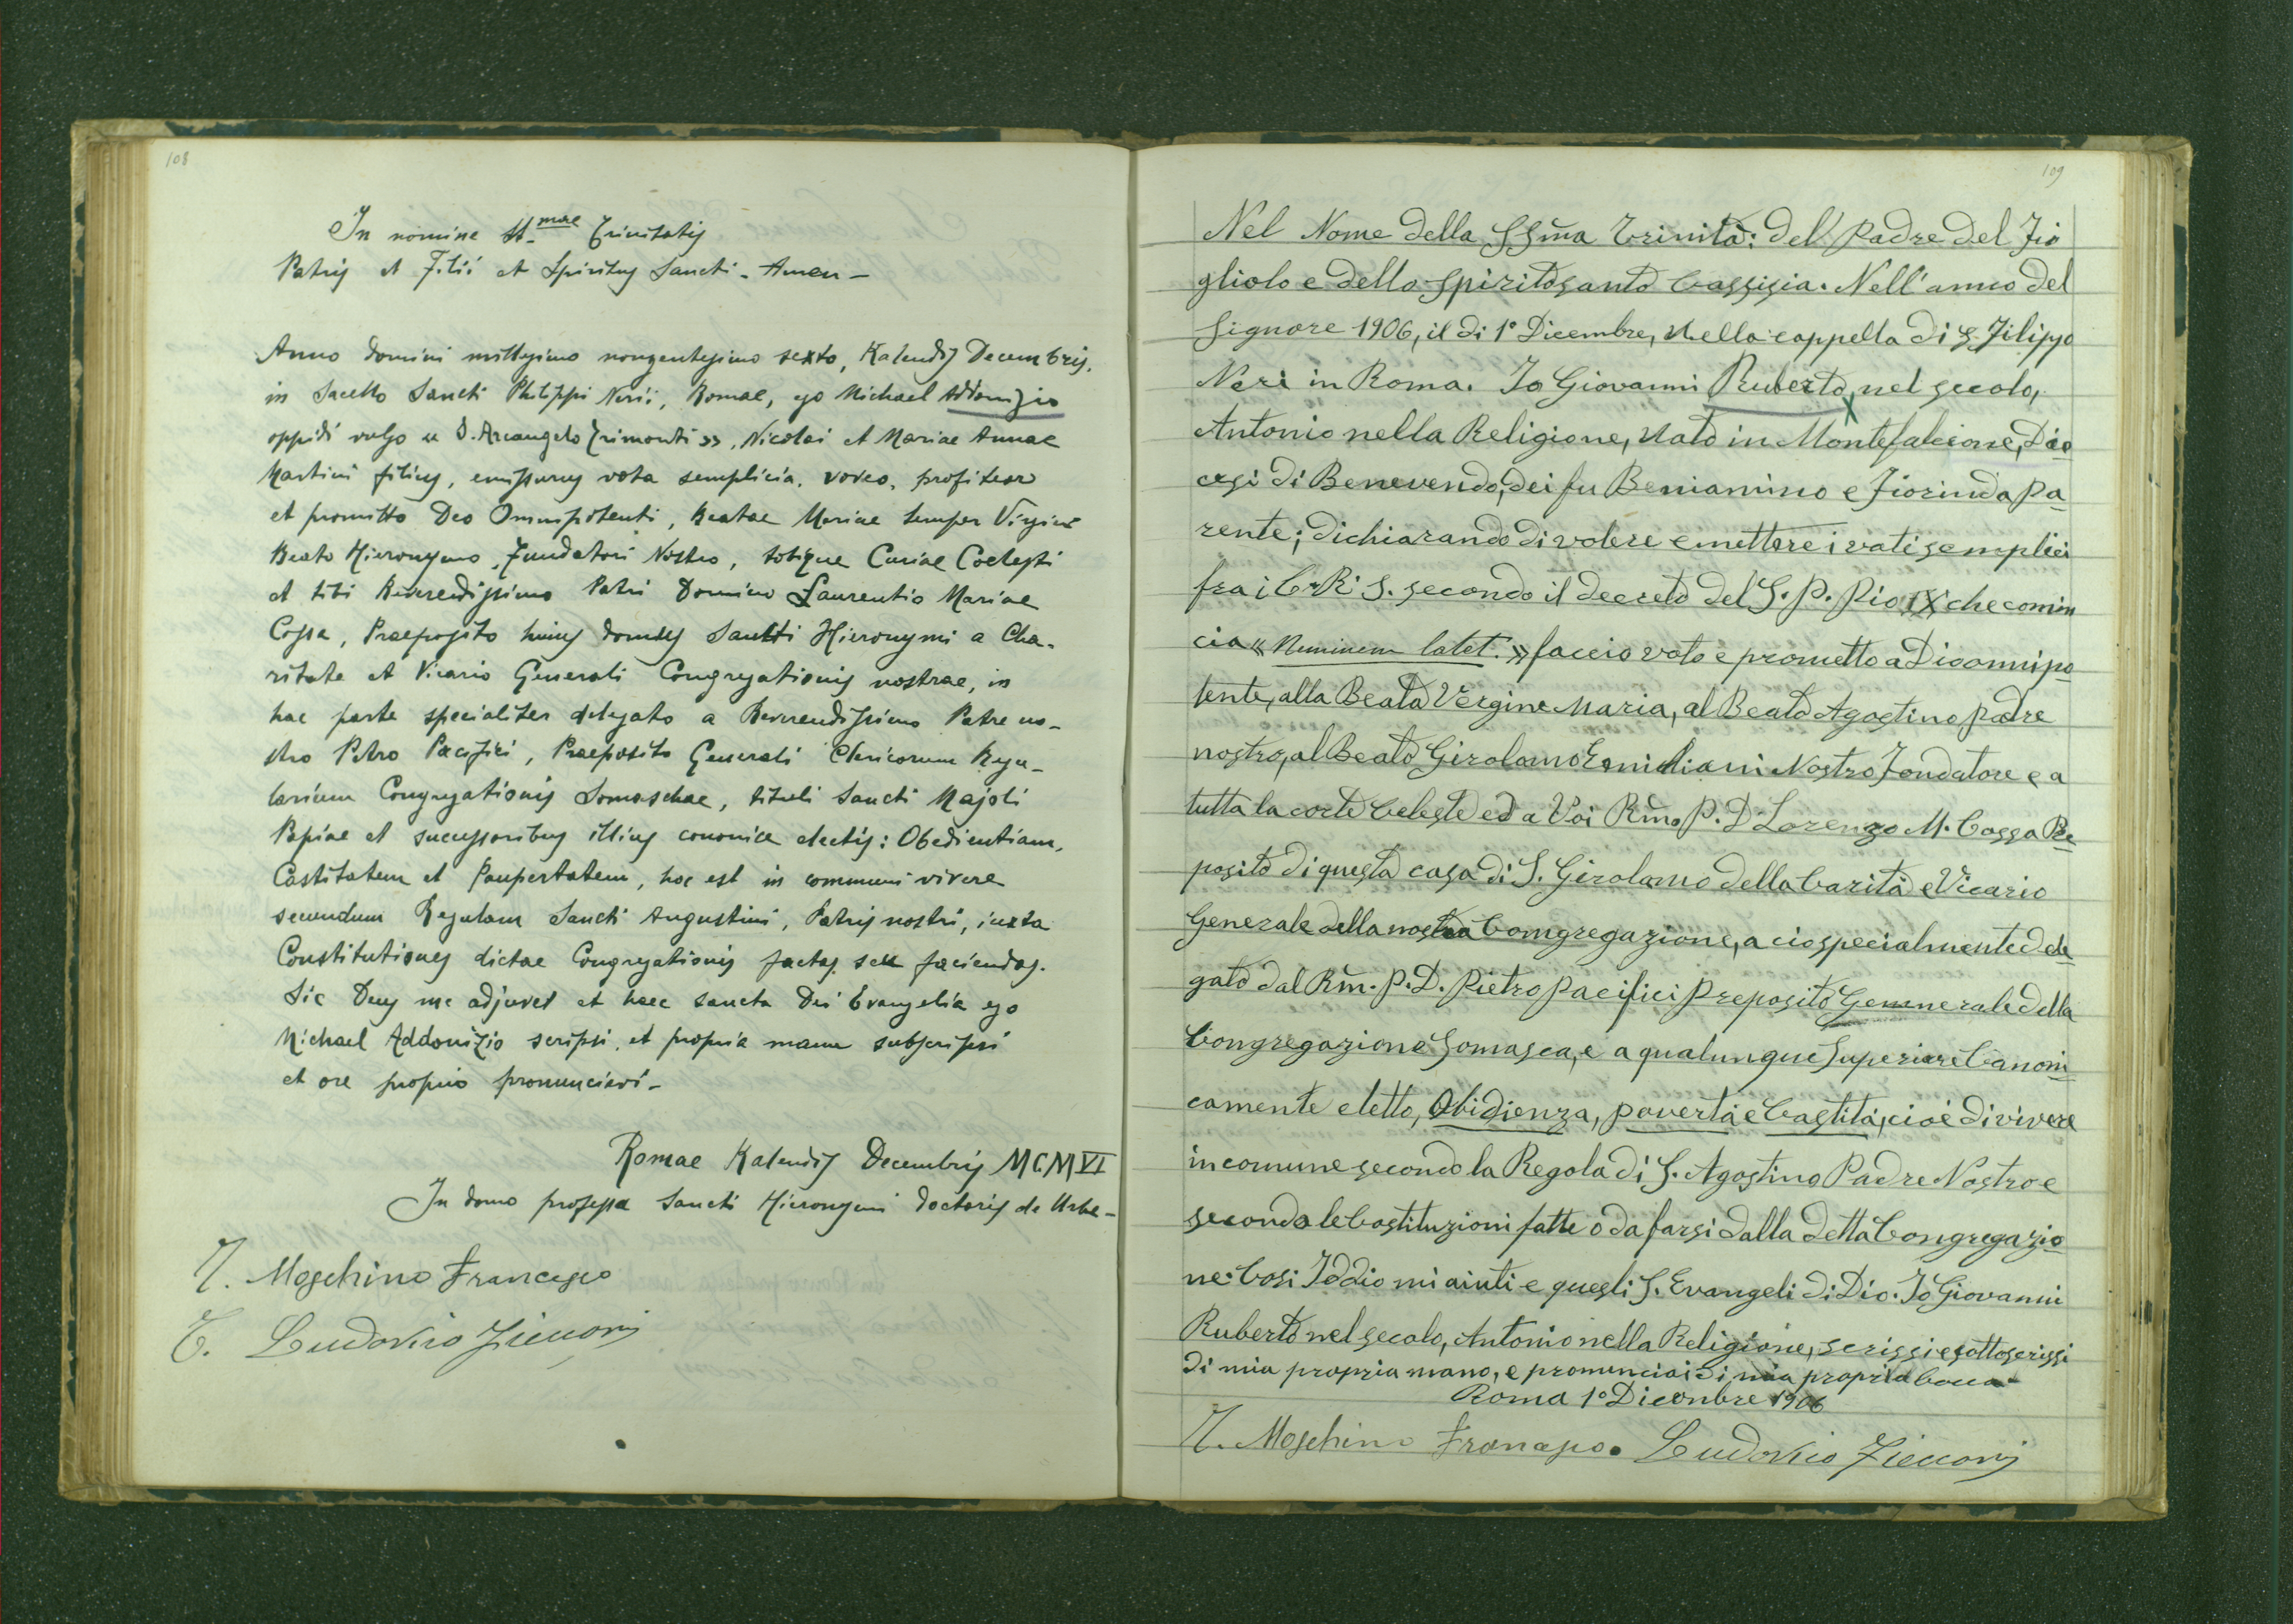 108
In nomine SS.mae Trinitatis
Patris et Filii et Spiritus Sancti - Amen -
Anno Domini millesimo nongentesimo sexto, Kalendis Decembris,
in Sacello Sancti Philippi Nerii, Romae, ego Michael Addonizio
oppidi vulgo « S. Arcangelo Trimonti », Nicolai et Mariae Annae
Martini filius, emissurus vota semplicia, voveo, profiteor
et promitto Deo Omnipotenti, Beatae Mariae semper Virgini
Beato Hieronymo, Fundatori Nostro, totique Curiae Coelesti
et tibi Reverendissimo Patri Domino Laurentio Mariae
Cossa, Praeposito huius domus Sancti Hieronymi a Cha-
ritate et Vicario Generali Congregationis nostrae, in
hac parte specialiter delegato a Reverendissimo Patre no-
stro Petro Pacifici, Praeposito Generali Clericorum Regu-
larium Congregationis Somaschae, tituli Sancti Majoli
Papiae et successoribus illius canonice electis: Obedientiam,
Castitatem et Paupertatem, hoc est in communi vivere
secundum Regulam Sancti Augustini, Patris nostri, iuxta
Constitutiones dictae Congregationis factas seu faciendas.
Sic Deus me adjuvet et haec sancta Dei Evangelia ego
Michael Addonizio scripsi, et propria manu subscripsi
et ore proprio pronunciavi -
Romae Kalendis Decembris MCMVI
In domo professa Sancti Hieronymi Doctoris de Urbe -
T. Moschino Francesco
T. Ludovico Zicconi
109
Nel Nome della SSm̃a Trinità: del Padre del Fi
gliolo e dello Spiritosanto Cassisia. Nell'anno del
Signore 1906, il di 1º Dicembre, nella cappella di S. Filippo
Neri in Roma. Io Giovanni Ruberto, nel secolo,
Antonio nella Religione, nato in Montefalcione, Dio
cesi di Benevendo, dei fu Benianimo e Fiorinda Pa
rente; dichiarando di volere emettere i voti semplici
fra i C. R. S. secondo il decreto del S. P. Pio IX che comin
cia « Neminem latet. » faccio voto e prometto a Dio onnipo
tente, alla Beata Vergine Maria, al Beato Agostino padre
nostro, al Beato Girolamo Emiliani Nostro Fondatore e a
tutta la corte Celeste ed a Voi Rm̃o P. D. Lorenzo M. Cossa Pre
posito di questa casa di S. Girolamo della Carità e Vicario
Generale della nostra Comgregazione, a cio specialmente dele
gato dal Rm̃. P. D. Pietro Pacifici Preposito Genenerale della
Congregazione Somasca, e a qualunque Superiore Canoni
camente eletto, Obidienza, povertà e Castità, cioè di vivere
in comune secondo la Regola di S. Agostino Padre Nostro e
secondo le Costituzioni fatte o da farsi dalla detta Congregazio
ne: Cosi Iddio mi aiuti e questi S. Evangeli di Dio. Io Giovanni
Ruberto nel secolo, Antonio nella Religione, scrissi e sottoscrissi
di mia propria mano, e pronunciai di mia propria bocca
Roma 1º Dicenbre 1906
T. Moschino Francesco. Ludovico Zicconi